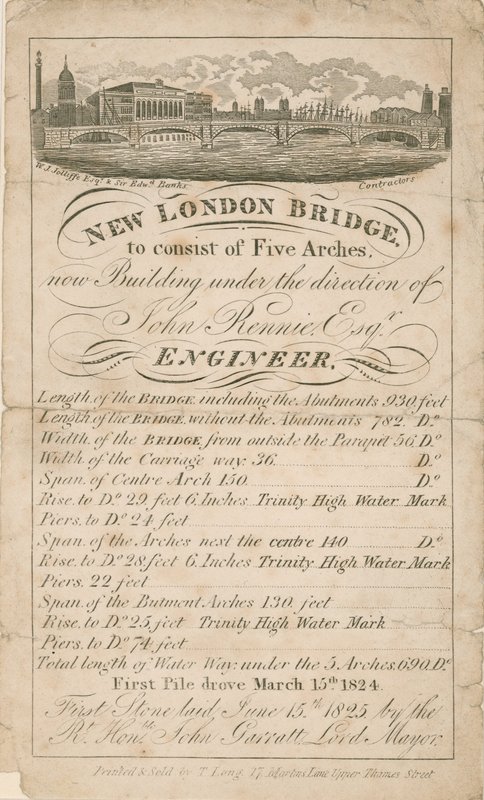 W. J. Jolliffe Esqr. & Sir Edwd. Banks Contractors
NEW LONDON BRIDGE.
to consist of Five Arches.
now Building under the direction of
John Rennie, Esqr.
ENGINEER.
Length of the BRIDGE, including the Abutments 930 feet
Length of the BRIDGE, without the Abutments 782. Do.
Width of the BRIDGE, from outside the Parapet 56. Do.
Width of the Carriage way. 36. Do.
Span of Centre Arch 150. Do.
Rise, to Do. 29 feet 6. Inches Trinity High Water Mark
Piers, to Do. 24 feet
Span of the Arches next the centre 140. Do.
Rise, to Do. 28, feet 6. Inches Trinity High Water Mark
Piers, 22 feet
Span of the Butment Arches 130. feet
Rise, to Do. 25, feet Trinity High Water Mark
Piers, to Do. 74 feet
Total length of Water Way, under the 5 Arches, 690. Do.
First Pile drove March 15th 1824.
First Stone laid June 15.th 1825 by the
Rt. Honble. John Garratt, Lord Mayor.
Printed & Sold by T. Long 17 Martins Lane Upper Thames Street